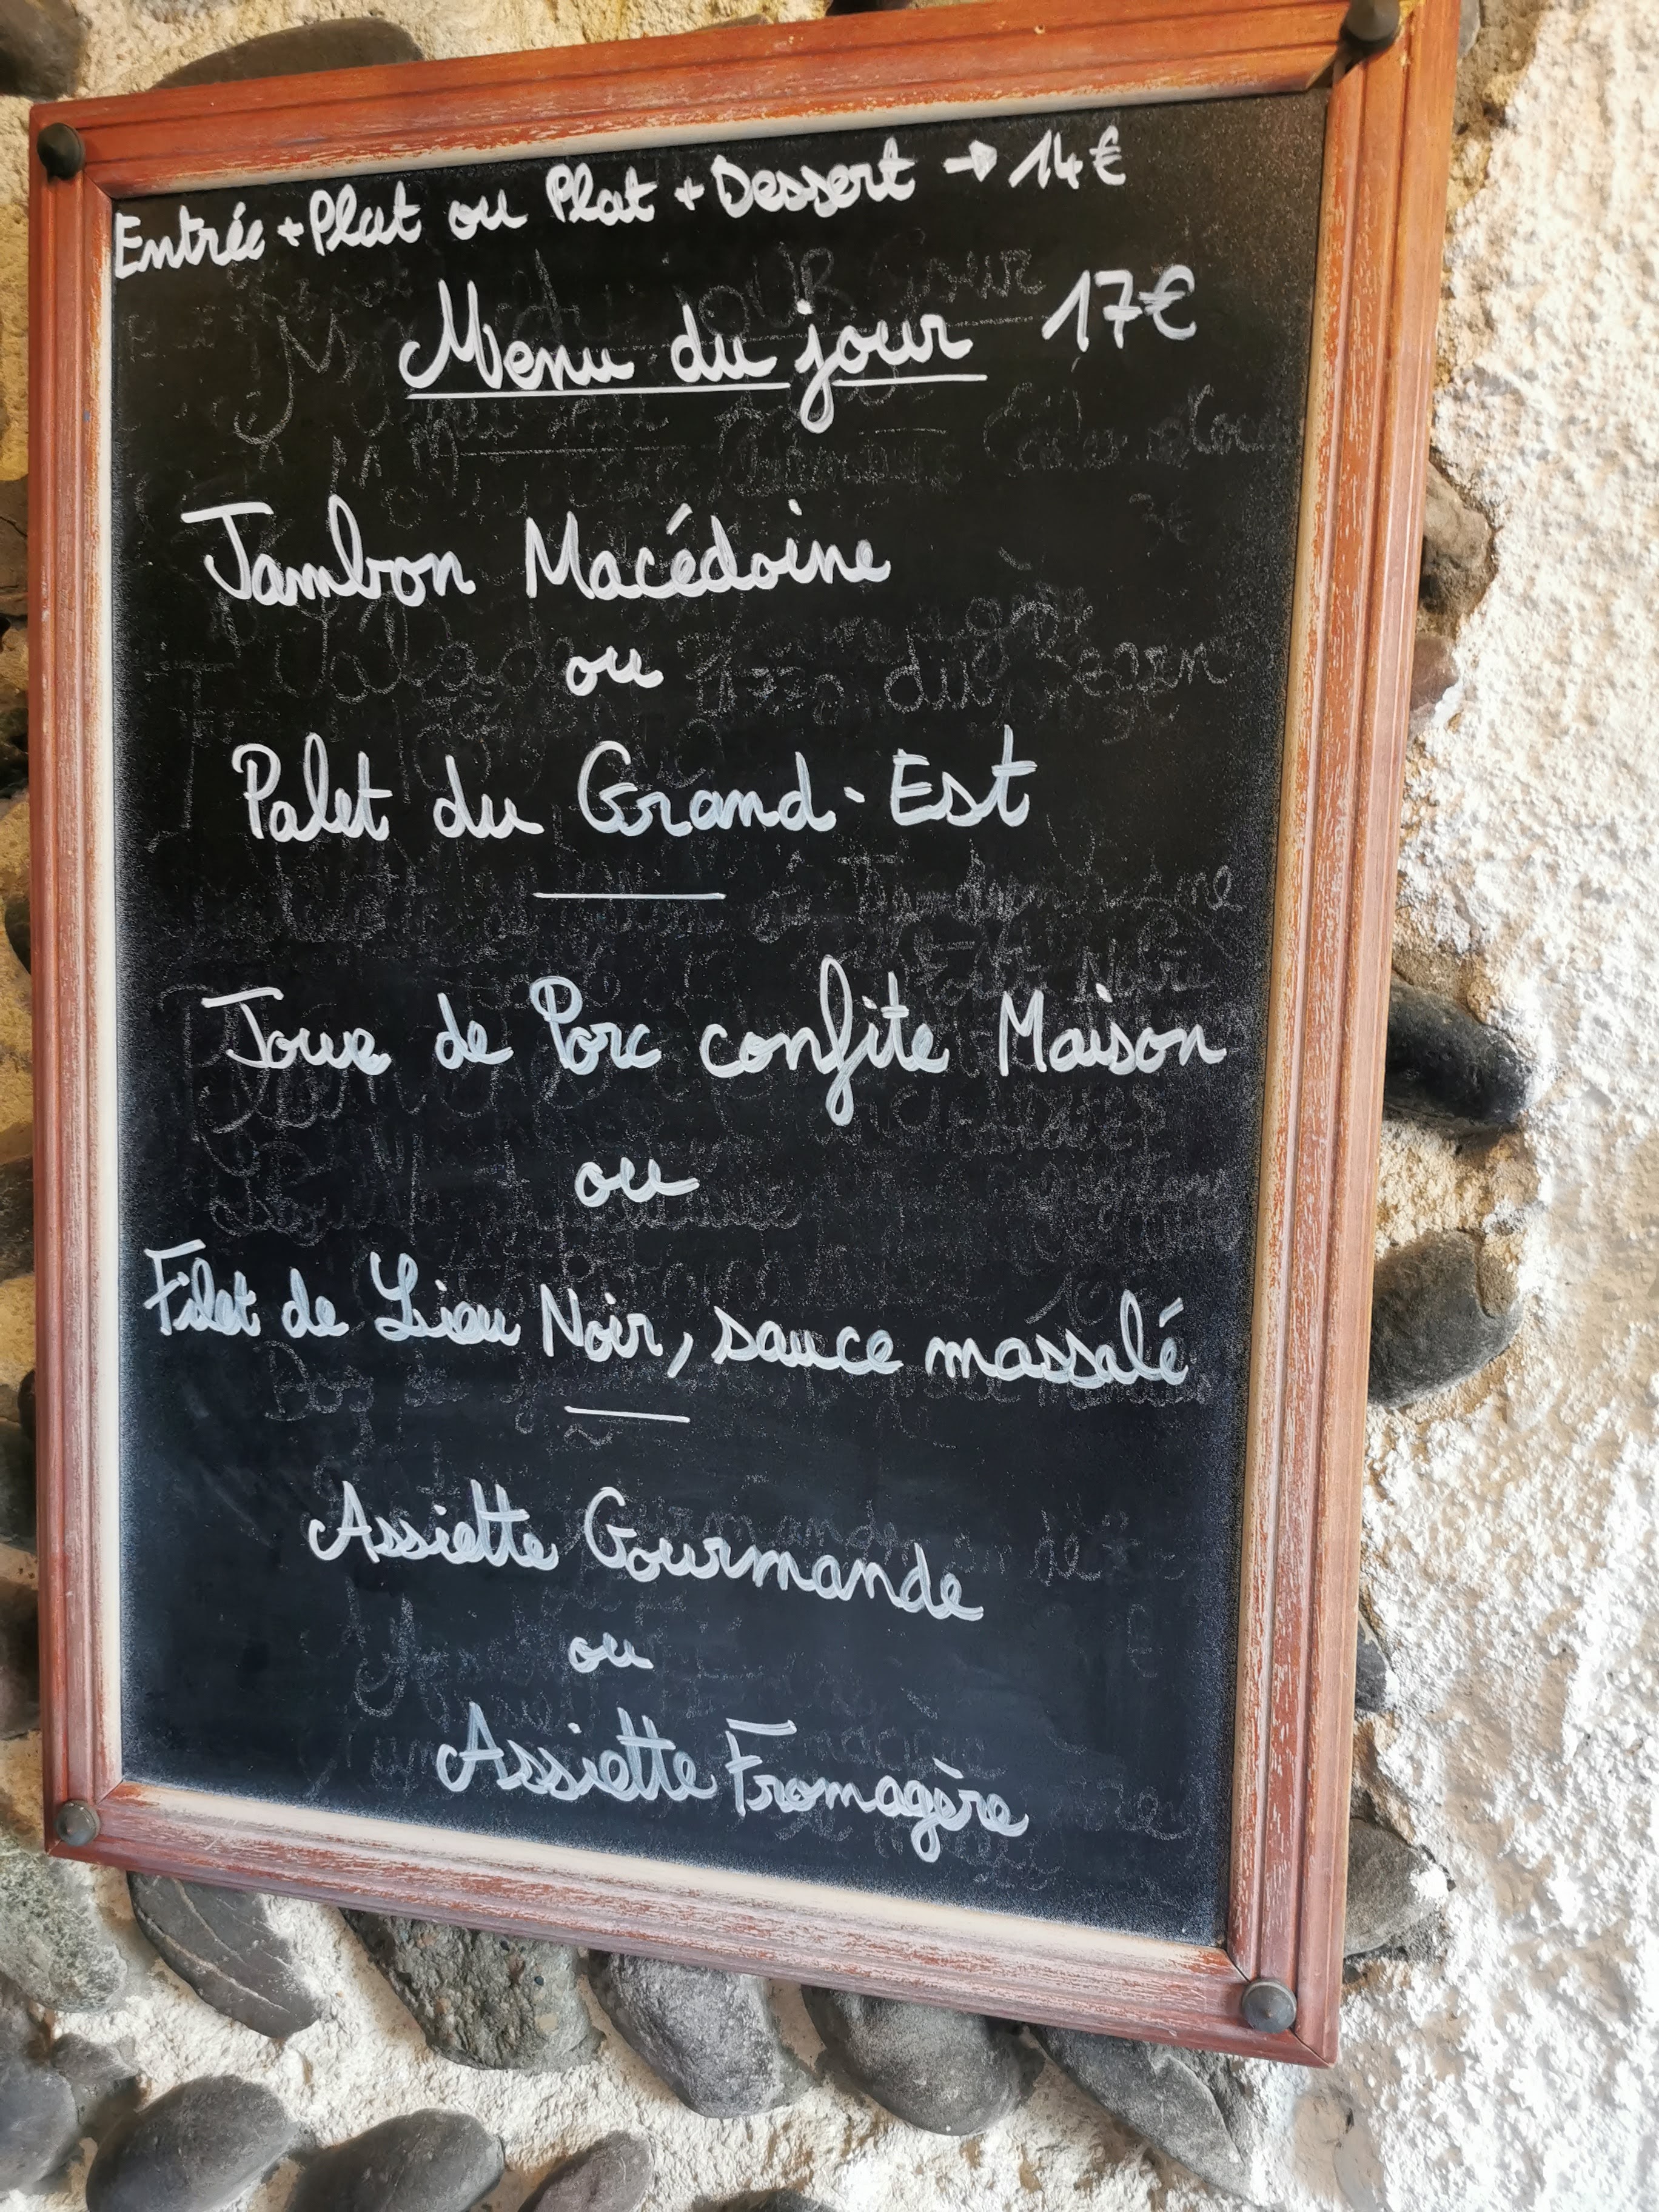 Entrée + Plat ou Plat + Dessert → 14€
Menu du jour 17€
Jambon Macédoine
ou
Palet du Grand-Est
Joue de Porc confite Maison
ou
Filet de Lieu Noir, sauce massalé
Assiette Gourmande
ou
Assiette Fromagère